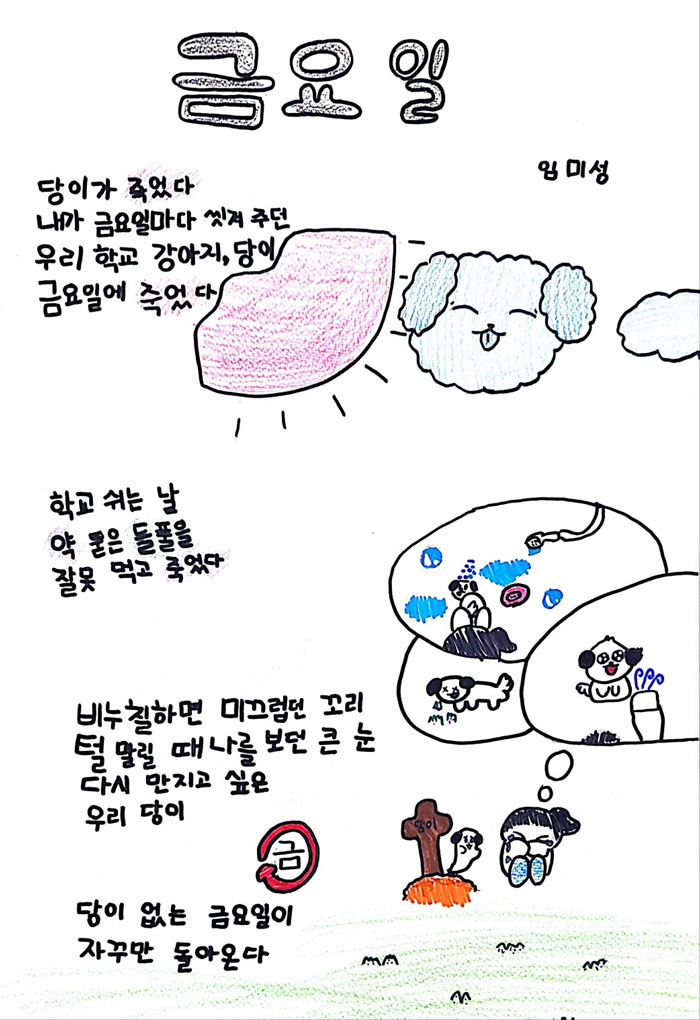 금요일
임미성
당이가 죽었다
내가 금요일마다 씻겨 주던
우리 학교 강아지, 당이
금요일에 죽었다
학교 쉬는 날
약 묻은 들풀을
잘못 먹고 죽었다
비누칠하면 미끄럽던 꼬리
털 말릴 때 나를 보던 큰 눈
다시 만지고 싶은
우리 당이
당이
금
당이 없는 금요일이
자꾸만 돌아온다